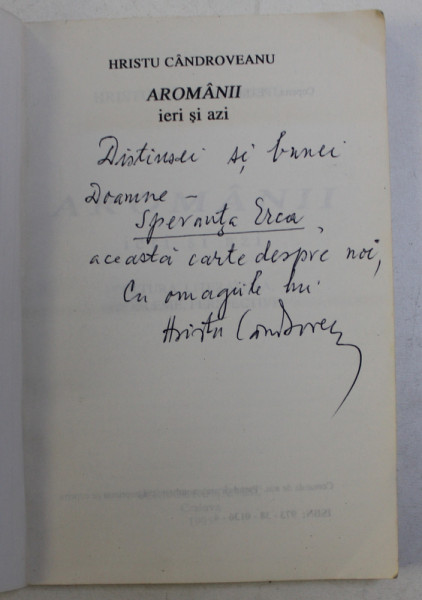 HRISTU CÂNDROVEANU
AROMÂNII
ieri și azi
Distinsei și bunei
Doamne –
Speranța Erca,
această carte despre noi,
Cu omagiile lui
Hristu Cândrovea